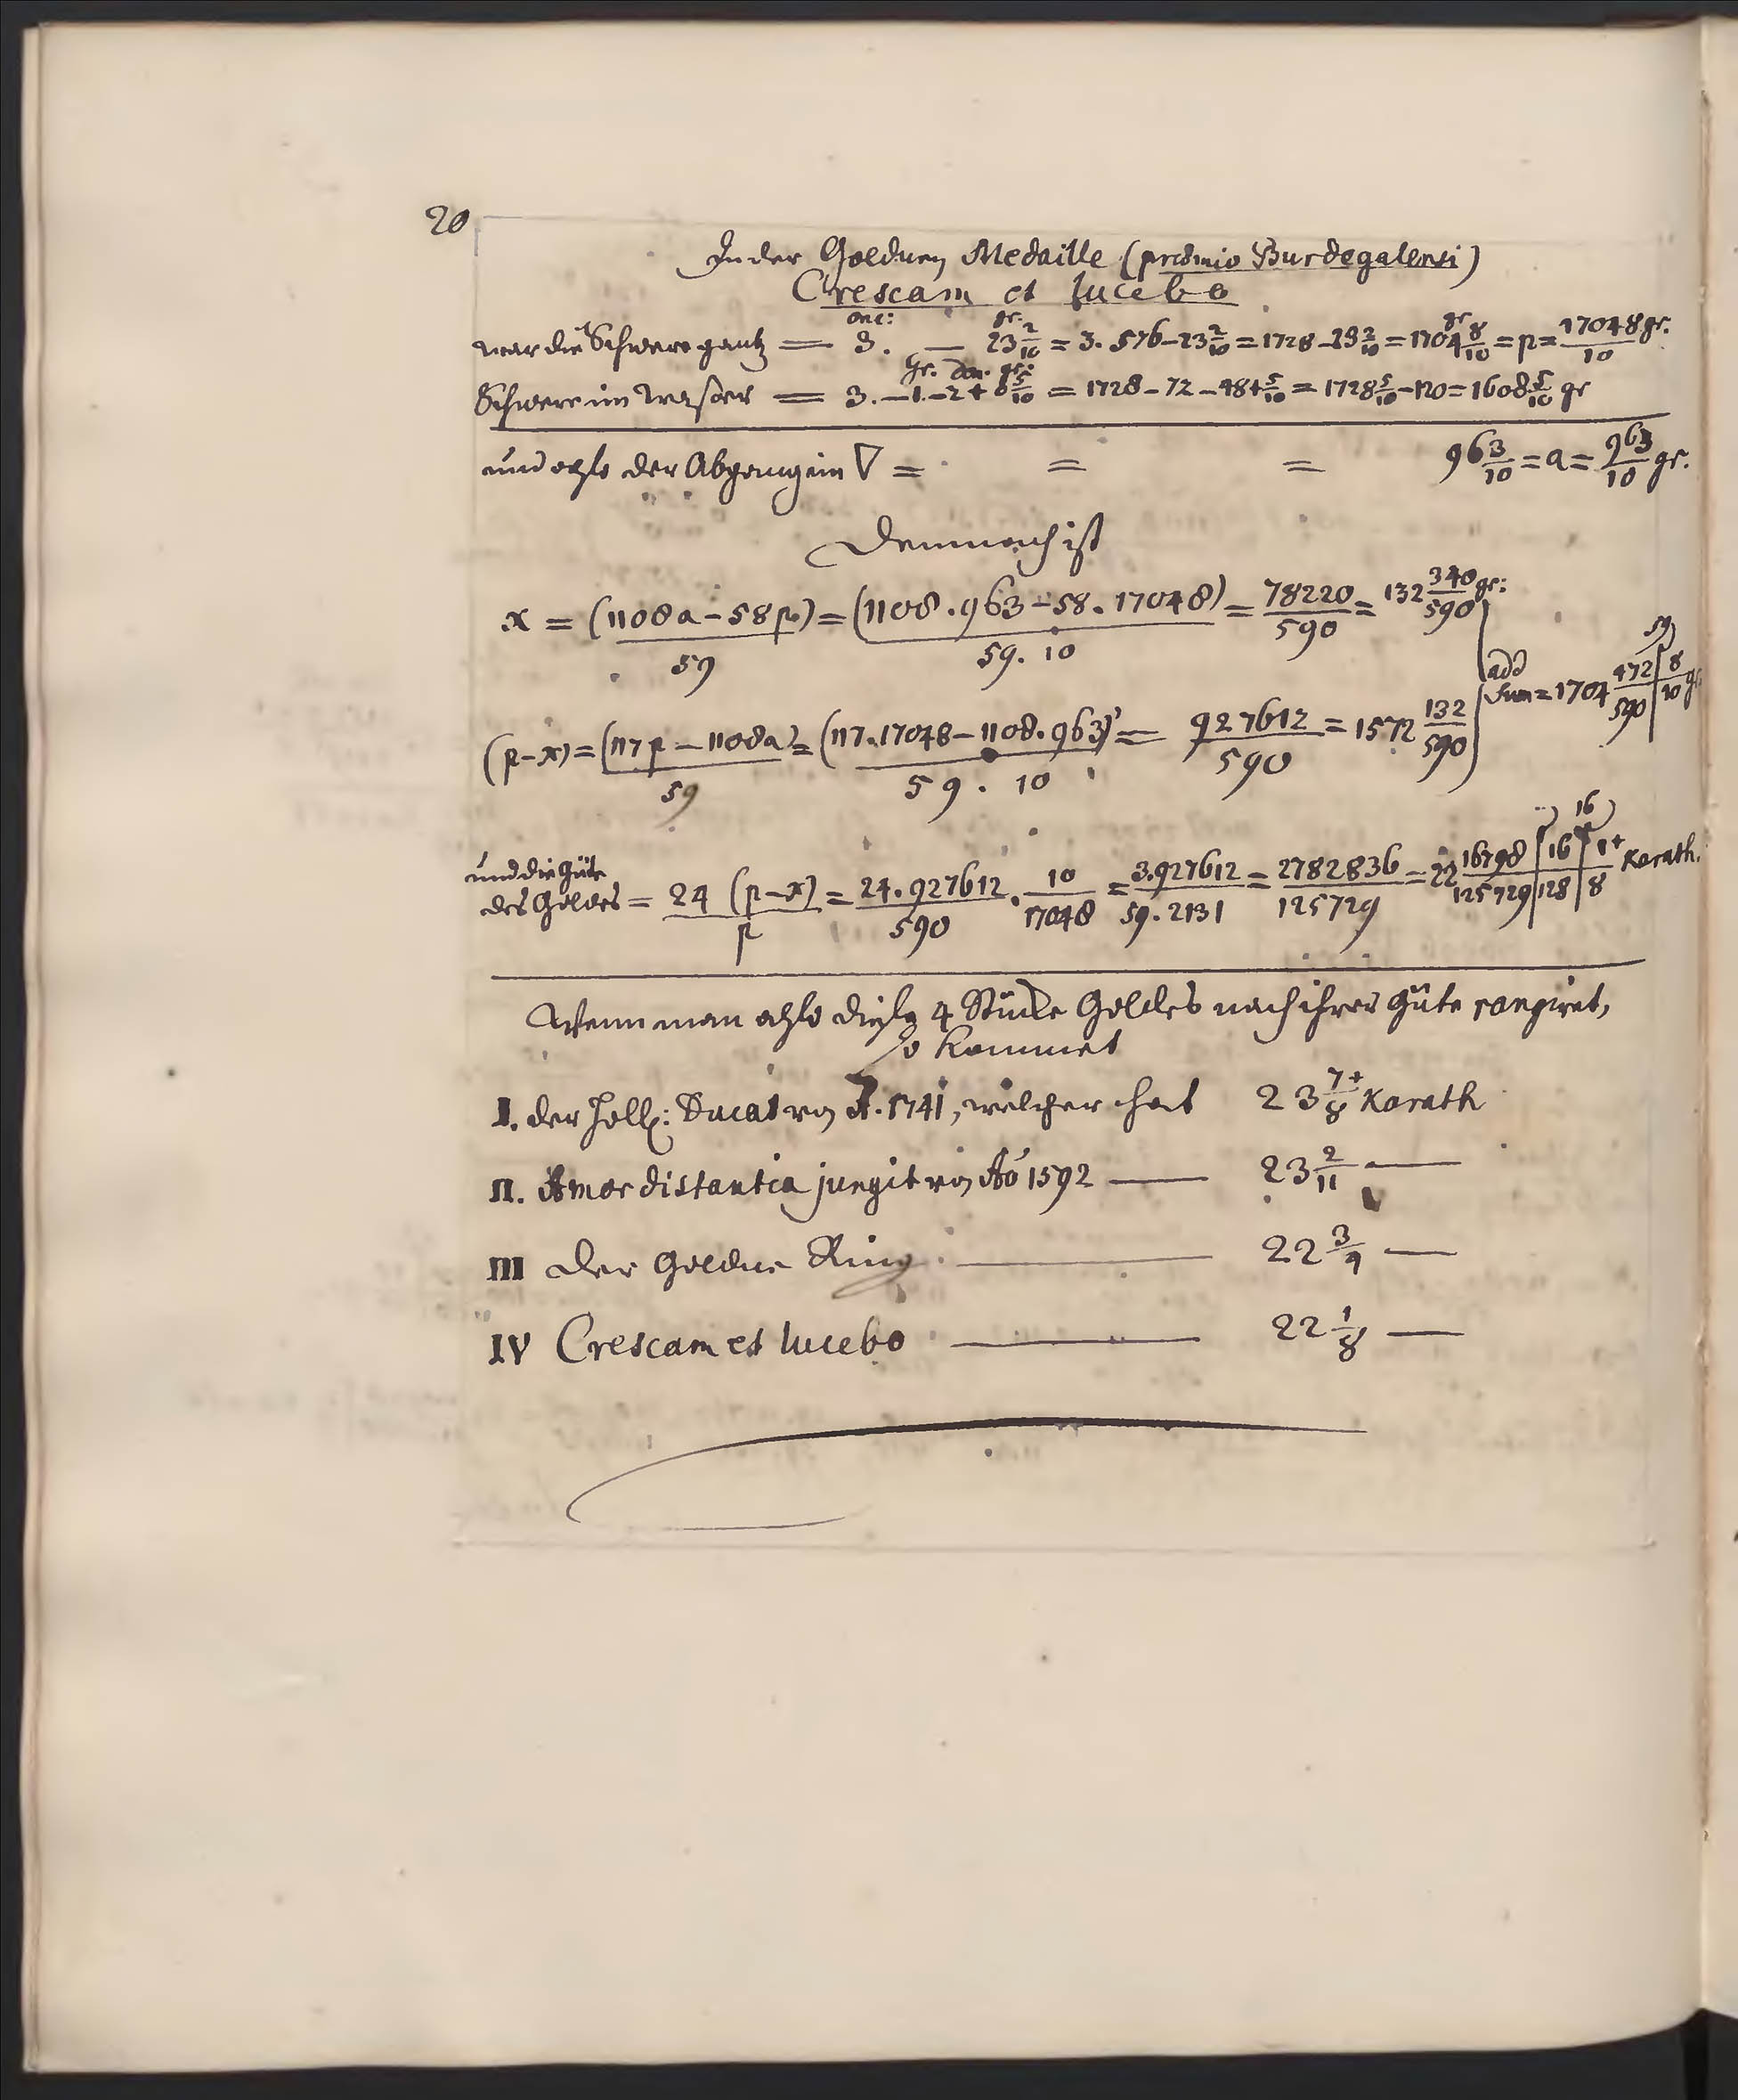 20
In der Goldnen Medaille (præmio Burdegalensi)
Crescam et lucebo
onc: gr.
war die Schwere gantz = 3. — 23 2/10 = 3. 576 - 23 2/10 = 1728 - 23 2/10 = 1704 8/10 gr = p = 17048/10 gr.
Gr. den. gr:
Schwere im Waßer = 3. - 1. - 2 + 0 5/10 = 1728 - 72 - 48 + 5/10 = 1728 5/10 - 120 = 1608 5/10 gr
und also der Abgang im ▽ = = = 96 3/10 = a = 963/10 gr.
Demnach ist
x = (1108a - 58p)/59 = (1108 . 963 - 58 . 17048)/59 . 10 = 78220/590 = 132 340/590 gr:
add
Sum = 1704 472/590 | 8/10 gr
59)
(p-x) = (117p - 1108a)/59 = (117 . 17048 - 1108 . 963)/59 . 10 = 927612/590 = 1572 132/590
und die Güte
des Goldes = 24 (p-x)/p = 24 . 927612/590 . 10/17048 = 3.927612/59 . 2131 = 2782836/125729 = 22 16798/125729 | 16/128 | 1+/8 Karath.
16)
Wenn man also diese 4 Stücke Goldes nach ihrer Güte rangiret,
so kommet
I. der Holl: Ducat von A. 1741, welcher hat 23 7+/8 Karath
II. Amor distantia jungit von Aō 1592 — 23 2/11 —
III der Goldne Ring — 22 3/9 —
IV Crescam et lucebo — 22 1/8 —